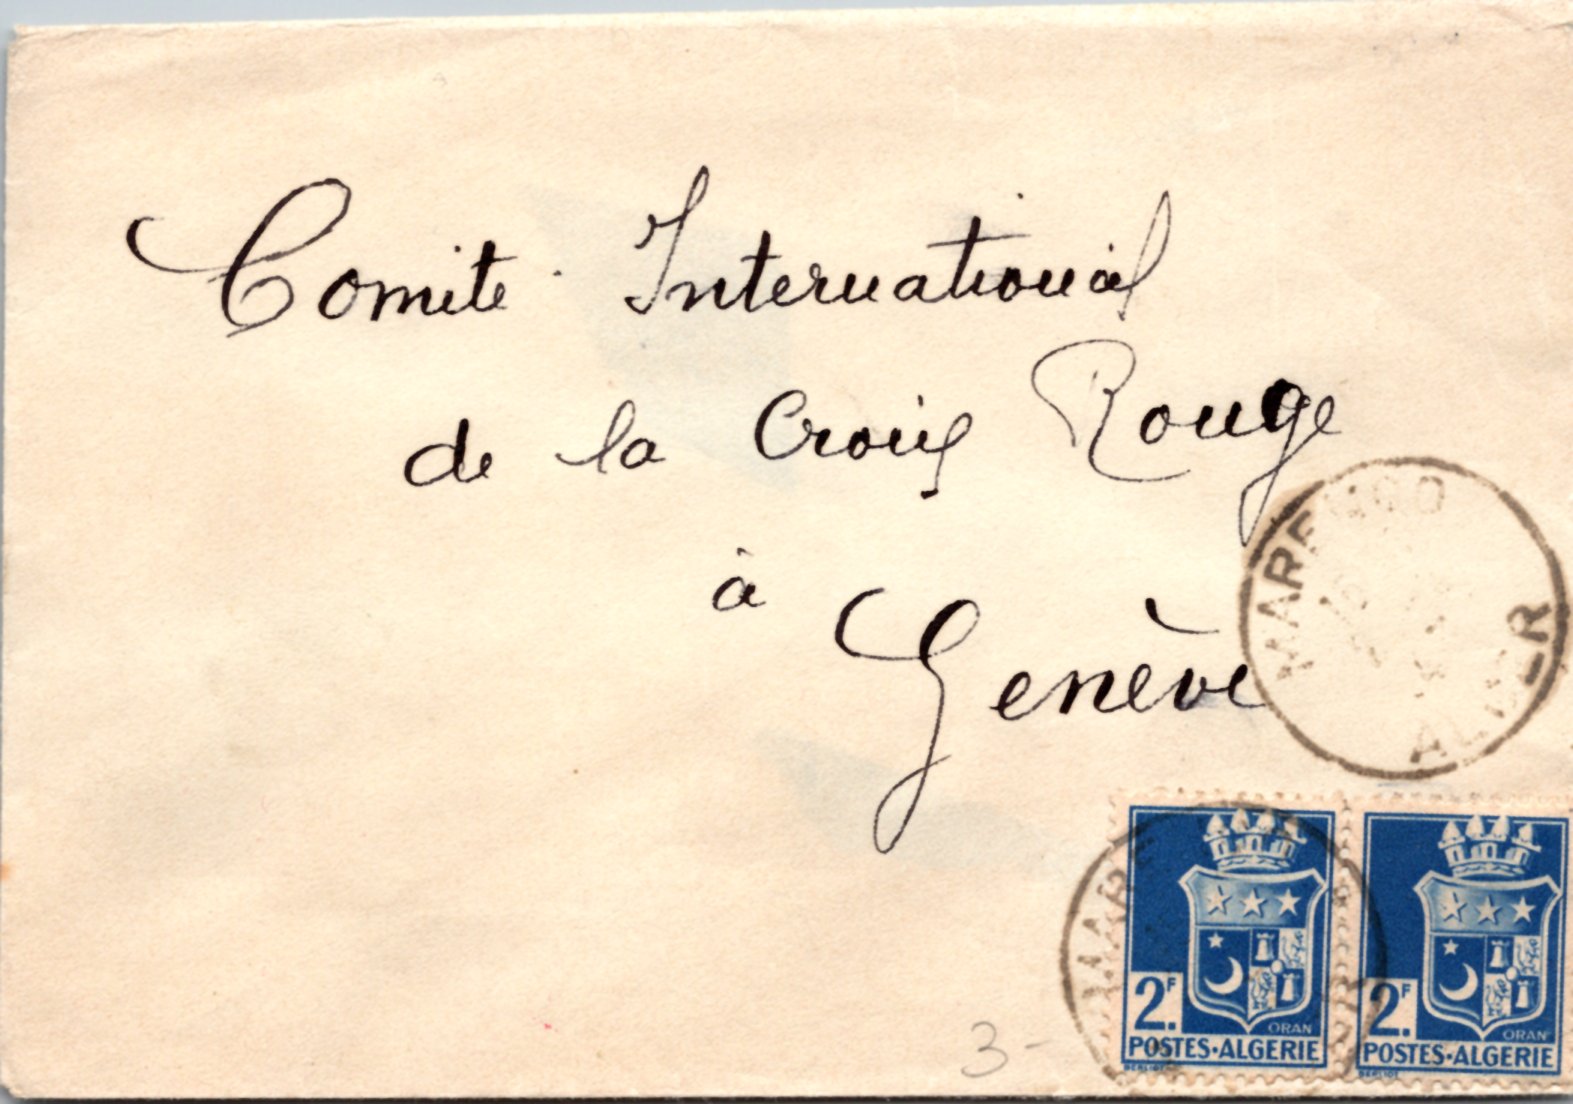 Comité International
de la Croix Rouge
à
Genève
MARENGO
ALGER
MARE
2F.
ORAN
POSTES·ALGERIE
BERLIOT
2F.
ORAN
POSTES·ALGERIE
BERLIOT
3-